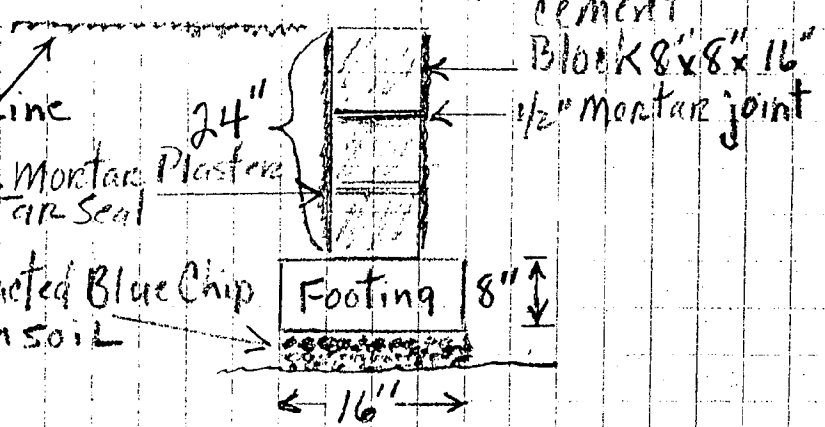 cement
Block 8"x8"x 16"
1/2" Mortar joint
Line
24"
Mortar Plaster
TAR Seal
acted Blue Chip
n soil
Footing
8"
16"